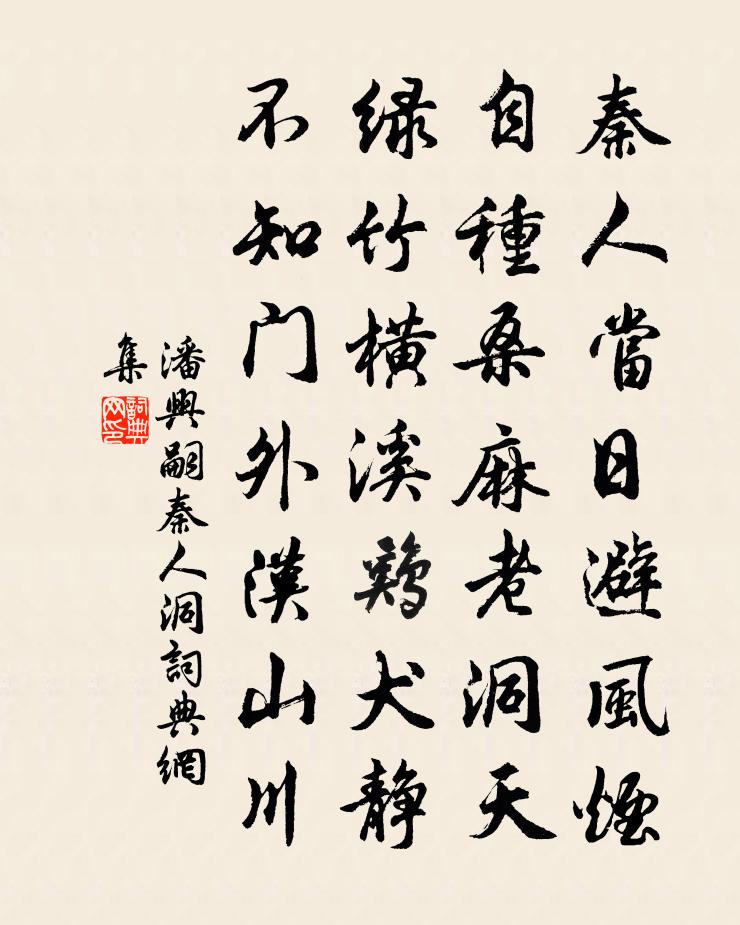 秦人當日避風煙
自種桑麻老洞天
綠竹橫溪鷄犬静
不知門外漢山川
潘興嗣秦人洞詞典網
集
詞典网印